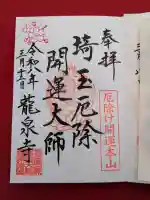 奉拝
厄除け開運本山
琦玉厄除
開運大師
令和六年
三月十二日
龍泉寺